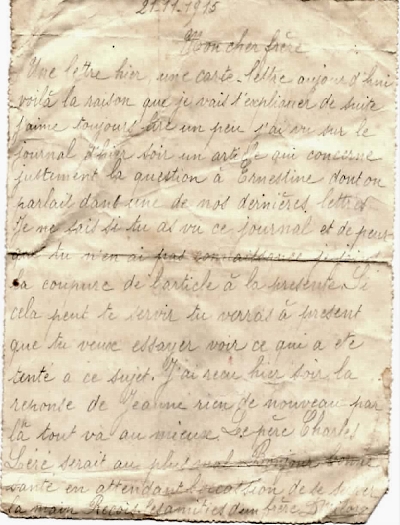 21-11-1915
Mon cher frère
Une lettre hier, une carte-lettre aujourd'hui
voilà la raison que je vais t'expliquer de suite
j'aime toujours lire un peu j'ai vu sur le
journal d'hier soir un article qui concerne
justement la question à Ernestine dont on
parlait dans une de nos dernières lettres
Je ne sais si tu as vu ce journal et de peur
que tu n'en ai pas connaissance je
la coupure de l'article à la présente. Si
cela peut te servir tu verras à présent
que tu veux essayer voir ce qui a été
tenté à ce sujet. J'ai reçu hier soir la
réponse de Jeanne rien de nouveau par
là tout va au mieux. Le père Charles
serait au plus mal. Bonjour bonne
santé en attendant l'occasion de se serrer
la main Reçois les amitiés d'un frère